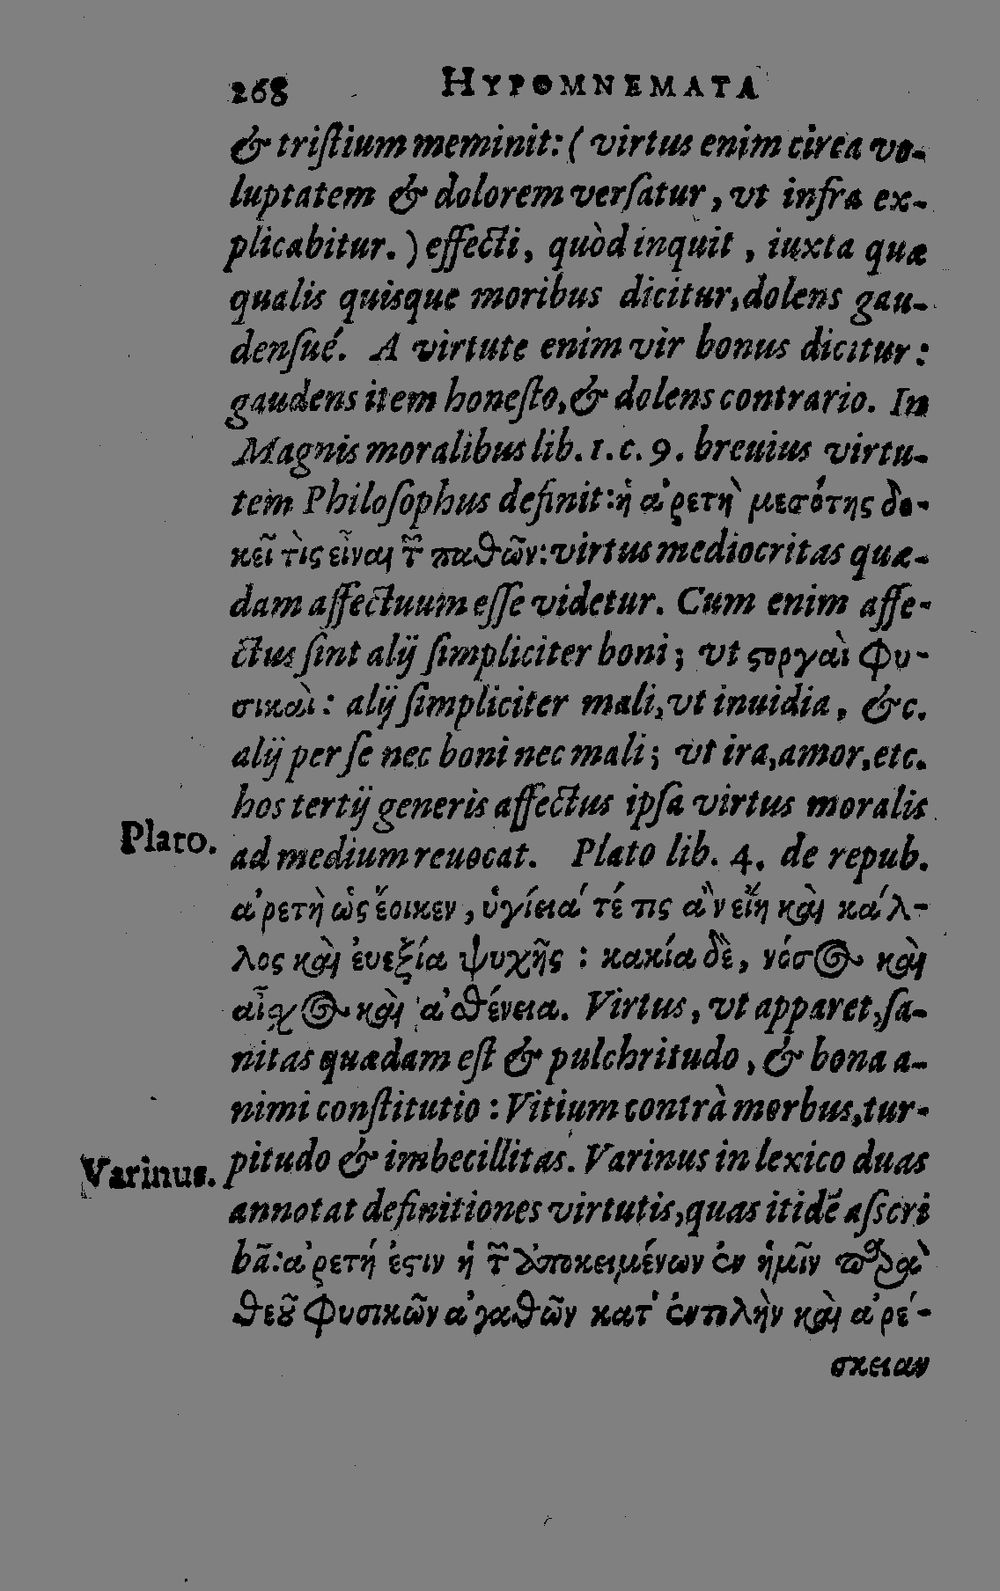 268 HYPOMNEMATA
& triſtium meminit: ( virtus enim circa vo-
luptatem & dolorem verſatur, vt infra ex-
plicabitur. ) effecti, quòd inquit, iuxta quæ
qualis quisque moribus dicitur, dolens gau-
denſué. A virtute enim vir bonus dicitur:
gaudens item honeſto, & dolens contrario. In
Magnis moralibus lib. 1. c. 9. breuius virtu-
tem Philoſophus definit: ἡ ἀρετὴ μεσότης δο-
κεῖ τὶς εἶναι τ῀ παθῶν: virtus mediocritas quæ-
dam affectuum eſſe videtur. Cum enim affe-
ctus ſint alij ſimpliciter boni; vt ϛοργαὶ φυ-
σικαὶ: alij ſimpliciter mali, vt inuidia, &c.
alij per ſe nec boni nec mali; vt ira, amor, etc.
hos tertij generis affectus ipſa virtus moralis
Plato.
ad medium reuocat. Plato lib. 4. de repub.
ἀρετὴ ὡς ἔοικεν, ὑγίεια τέ τις ἂν εἴη καὶ κάλ-
λος καὶ ἐυεξία ψυχῆς : κακία δὲ, νόσος καὶ
αἶχος καὶ ἀσθένεια. Virtus, vt apparet, ſa-
nitas quædam eſt & pulchritudo, & bona a-
nimi conſtitutio : Vitium contrà morbus, tur-
Varinus.
pitudo & imbecillitas. Varinus in lexico duas
annotat definitiones virtutis, quas itidē aſscri
bā: ἀρετή ἐϛιν ἡ τ῀ ὑποκειμένων ἐν ἡμῖν παρὰ
θεοῦ φυσικῶν ἀγαθῶν κατ' ἐντολὴν καὶ ἀρέ-
σκειαν